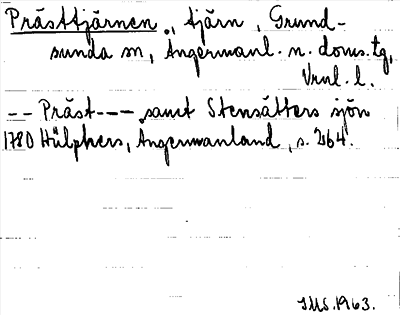 Prästtjärnen, tjärn, Grund-
sunda sn, Ångermanl. n. doms.tg,
Vrnl. l.
-- Präst--- samt Stensätters sjön
1780 Hülphers, Ångermanland, s. 264.
IMS. 1963.